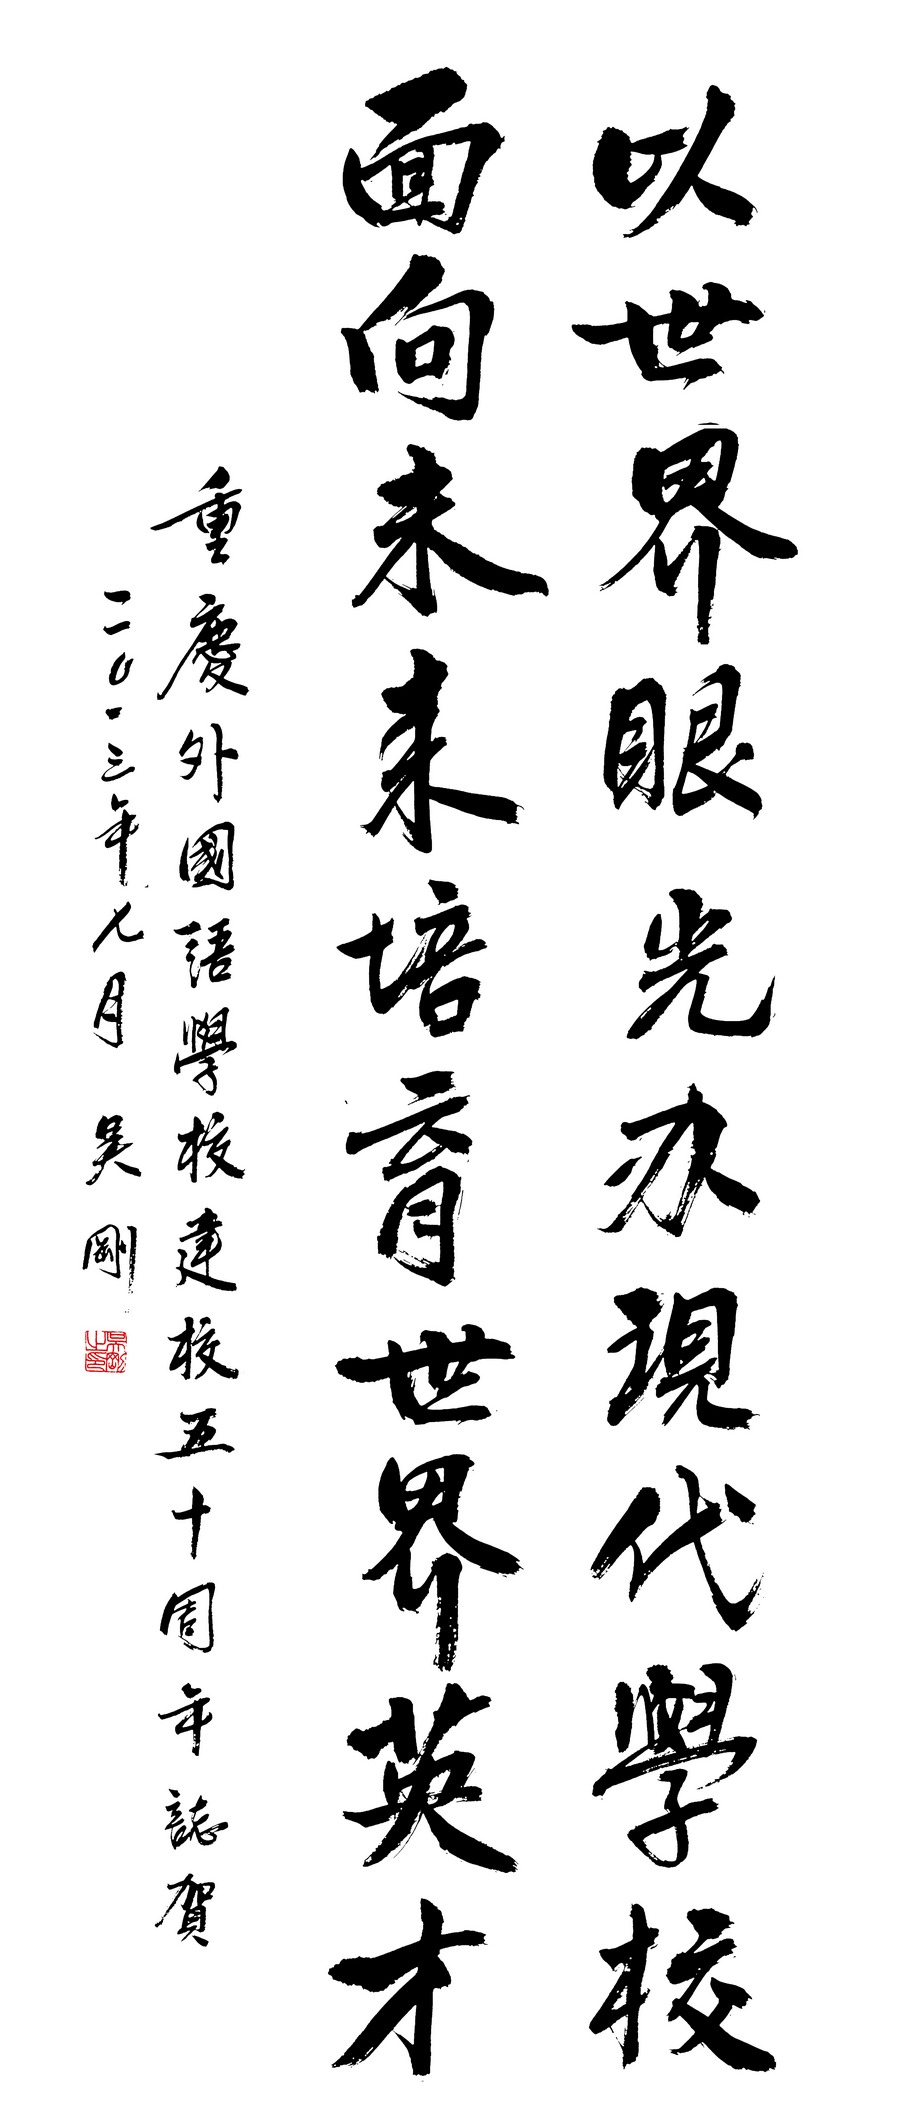 以世界眼光办現代學校
面向未来培育世界英才
重慶外國語學校建校五十周年誌賀
二〇一三年九月 吴剛
吴剛之印